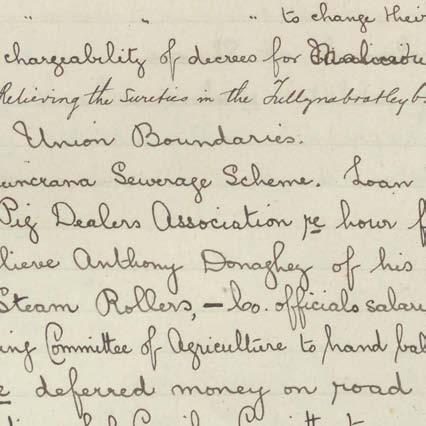 " " " to change their
chargeability of decrees for
Relieving the Sureties in the
Union Boundaries.
uncrana Sewerage Scheme. Loan
Pig Dealers Association re hour f
lieve Anthony Donaghey of his
Steam Rollers, – Co. officials salar
ing Committee of Agriculture to hand bal
re deferred money on road